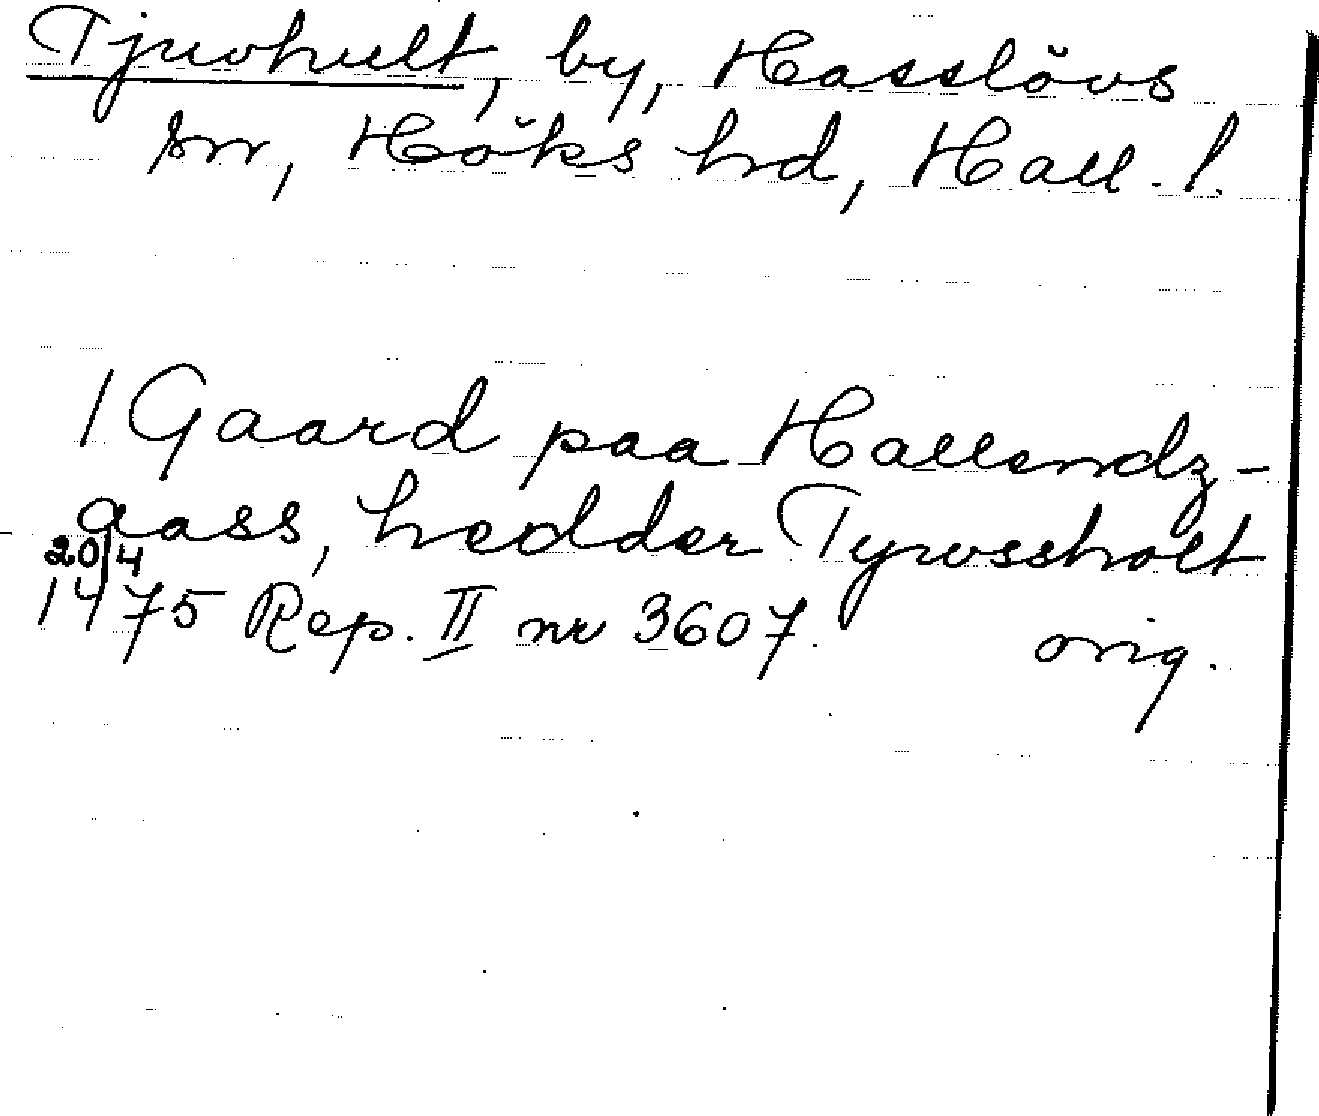 Tjuvhult, by, Hasslövs
sn, Höks hd, Hall. l.
1 Gaard paa Hallendz-
aass, hedder Tyvssholt
20/4
1475 Rep. II nr 3607. orig.